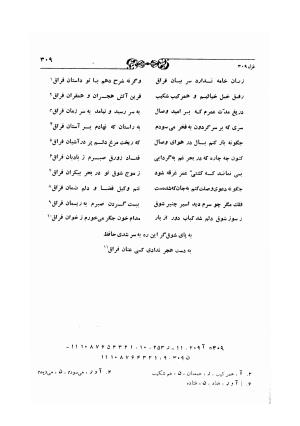 غزل ۳۰۹
۳۰۹
زبان خامه ندارد سر بیان فراق
وگرنه شرح دهم با تو داستان فراق ۱
رفیق خیل خیالیم و همرکیب شکیب
قرین آتش هجران و همقران فراق ۲
دریغ مدّت عمرم که بر امید وصال
به سر رسید و نیامد به سر زمان فراق ۳
سری که بر سر گردون به فخر می‌سودم
به راستان که نهادم بر آستان فراق ۴
چگونه باز کنم بال در هوای وصال
که ریخت مرغ دلم پر در آشیان فراق ۵
کنون چه چاره که در بحر غم به گردابی
فتاد زورق صبرم ز بادبان فراق ۶
بسی نماند که کشتی عمر غرقه شود
ز موج شوق تو در بحر بیکران فراق ۷
چگونه دعوی وصلت کنم به جان که شده‌ست
تنم وکیل قضا و دلم ضمان فراق ۸
فلک چو دید سرم را اسیر چنبر شوق
ببست گردن صبرم به ریسمان فراق ۹
ز سوز شوق دلم شد کباب دور از یار
مدام خون جگر می‌خورم ز خوان فراق ۱۰
به پای شوق گر این ره به سر شدی حافظ
به دست هجر ندادی کسی عنان فراق ۱۱